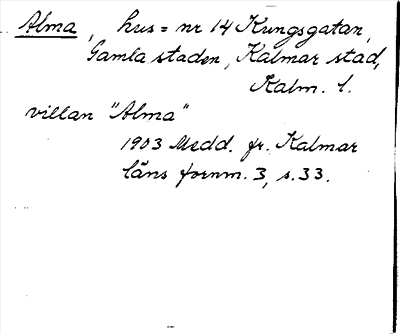 Alma, hus = nr 14 Kungsgatan,
Gamla staden, Kalmar stad,
Kalm. l.
villan "Alma"
1903 Medd. fr. Kalmar
läns fornm. 3, s. 33.